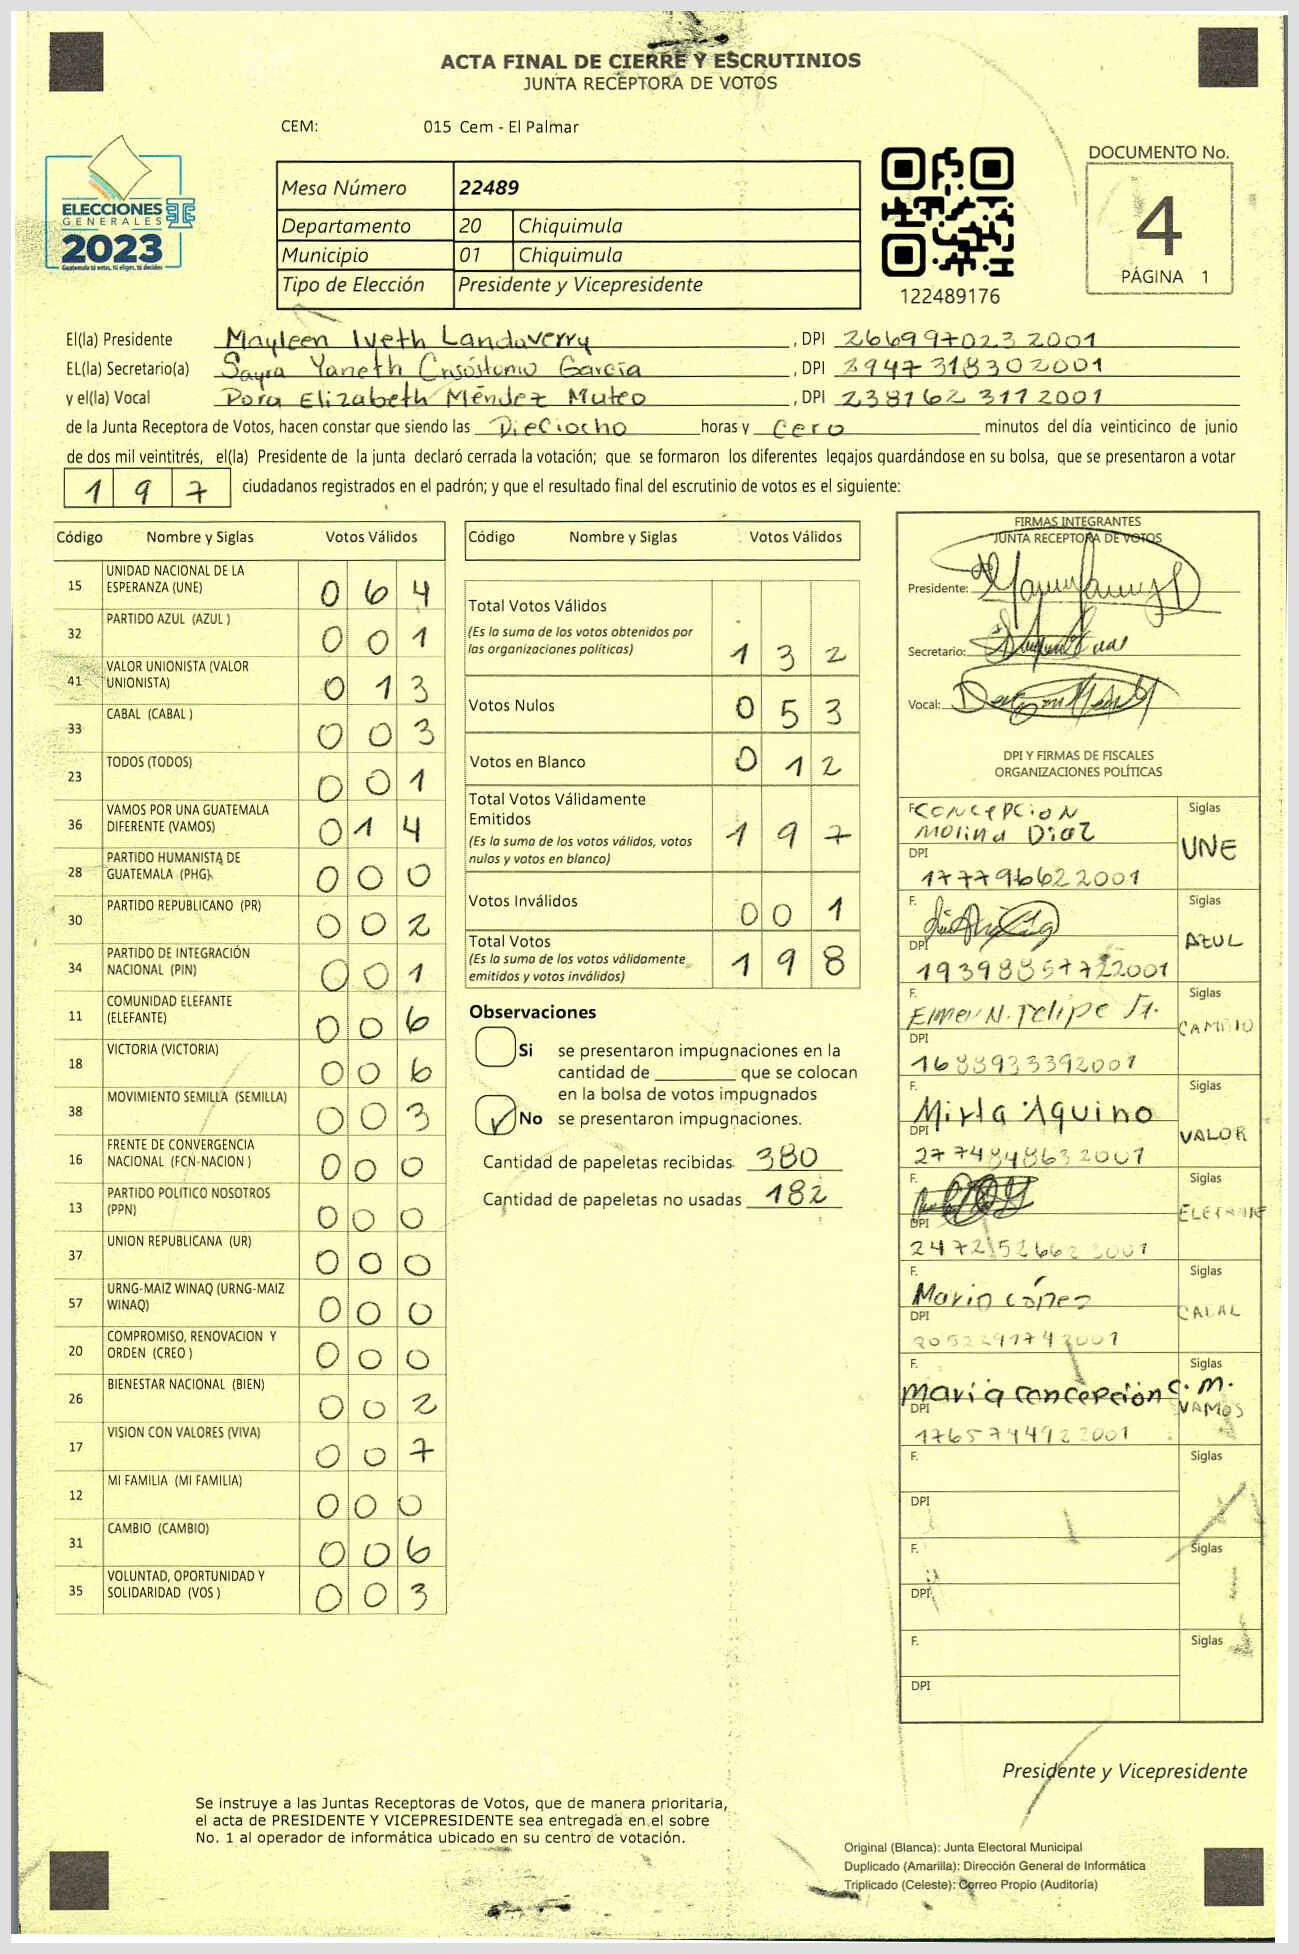 ACTA FINAL DE CIERRE Y ESCRUTINIOS
JUNTA RECEPTORA DE VOTOS
CEM: 015 Cem - El Palmar
ELECCIONES
GENERALES
2023
Guatemala tú votas, tú eliges, tú decides
Mesa Número 22489
Departamento 20 Chiquimula
Municipio 01 Chiquimula
Tipo de Elección Presidente y Vicepresidente
122489176
DOCUMENTO No.
4
PÁGINA 1
El(la) Presidente Mayleen Iveth Landaverry , DPI 2669970232001
EL(la) Secretario(a) Sayra Yaneth Crisóstomo García , DPI 2947318302001
y el(la) Vocal Dora Elizabeth Méndez Mateo , DPI 2381623112001
de la Junta Receptora de Votos, hacen constar que siendo las Dieciocho horas y Cero minutos del día veinticinco de junio
de dos mil veintitrés, el(la) Presidente de la junta declaró cerrada la votación; que se formaron los diferentes legajos quardándose en su bolsa, que se presentaron a votar
197 ciudadanos registrados en el padrón; y que el resultado final del escrutinio de votos es el siguiente:
Código Nombre y Siglas Votos Válidos
15 UNIDAD NACIONAL DE LA ESPERANZA (UNE) 064
32 PARTIDO AZUL (AZUL ) 001
41 VALOR UNIONISTA (VALOR UNIONISTA) 013
33 CABAL (CABAL ) 003
23 TODOS (TODOS) 001
36 VAMOS POR UNA GUATEMALA DIFERENTE (VAMOS) 014
28 PARTIDO HUMANISTA DE GUATEMALA (PHG) 000
30 PARTIDO REPUBLICANO (PR) 002
34 PARTIDO DE INTEGRACIÓN NACIONAL (PIN) 001
11 COMUNIDAD ELEFANTE (ELEFANTE) 006
18 VICTORIA (VICTORIA) 006
38 MOVIMIENTO SEMILLA (SEMILLA) 003
16 FRENTE DE CONVERGENCIA NACIONAL (FCN-NACION ) 000
13 PARTIDO POLITICO NOSOTROS (PPN) 000
37 UNION REPUBLICANA (UR) 000
57 URNG-MAIZ WINAQ (URNG-MAIZ WINAQ) 000
20 COMPROMISO, RENOVACION Y ORDEN (CREO ) 000
26 BIENESTAR NACIONAL (BIEN) 002
17 VISION CON VALORES (VIVA) 007
12 MI FAMILIA (MI FAMILIA) 000
31 CAMBIO (CAMBIO) 006
35 VOLUNTAD, OPORTUNIDAD Y SOLIDARIDAD (VOS ) 003
Código Nombre y Siglas Votos Válidos
Total Votos Válidos
(Es la suma de los votos obtenidos por
las organizaciones políticas) 132
Votos Nulos 053
Votos en Blanco 012
Total Votos Válidamente
Emitidos
(Es la suma de los votos válidos, votos
nulos y votos en blanco) 197
Votos Inválidos 001
Total Votos
(Es la suma de los votos válidamente
emitidos y votos inválidos) 198
Observaciones
Si se presentaron impugnaciones en la
cantidad de ________ que se colocan
en la bolsa de votos impugnados
No se presentaron impugnaciones.
Cantidad de papeletas recibidas 380
Cantidad de papeletas no usadas 182
FIRMAS INTEGRANTES
JUNTA RECEPTORA DE VOTOS
Presidente:
Secretario:
Vocal:
DPI Y FIRMAS DE FISCALES
ORGANIZACIONES POLÍTICAS
F. Concepcion Siglas
Molina Diaz UNE
DPI
1777966222001
F. Siglas
AZUL
DPI
19398857722001
F. Siglas
Elmer N. Felipe CAMBIO
DPI
1688933392001
F. Siglas
Mirla Aquino VALOR
DPI
2774848632001
F. Siglas
DPI
F. Siglas
Mario
DPI
2052291742001
F. Siglas
María Concepción C.M.
DPI VAMOS
1765744922001
F. Siglas
DPI
F. Siglas
DPI
F. Siglas
DPI
Presidente y Vicepresidente
Se instruye a las Juntas Receptoras de Votos, que de manera prioritaria,
el acta de PRESIDENTE Y VICEPRESIDENTE sea entregada en el sobre
No. 1 al operador de informática ubicado en su centro de votación.
Original (Blanca): Junta Electoral Municipal
Duplicado (Amarilla): Dirección General de Informática
Triplicado (Celeste): Correo Propio (Auditoría)